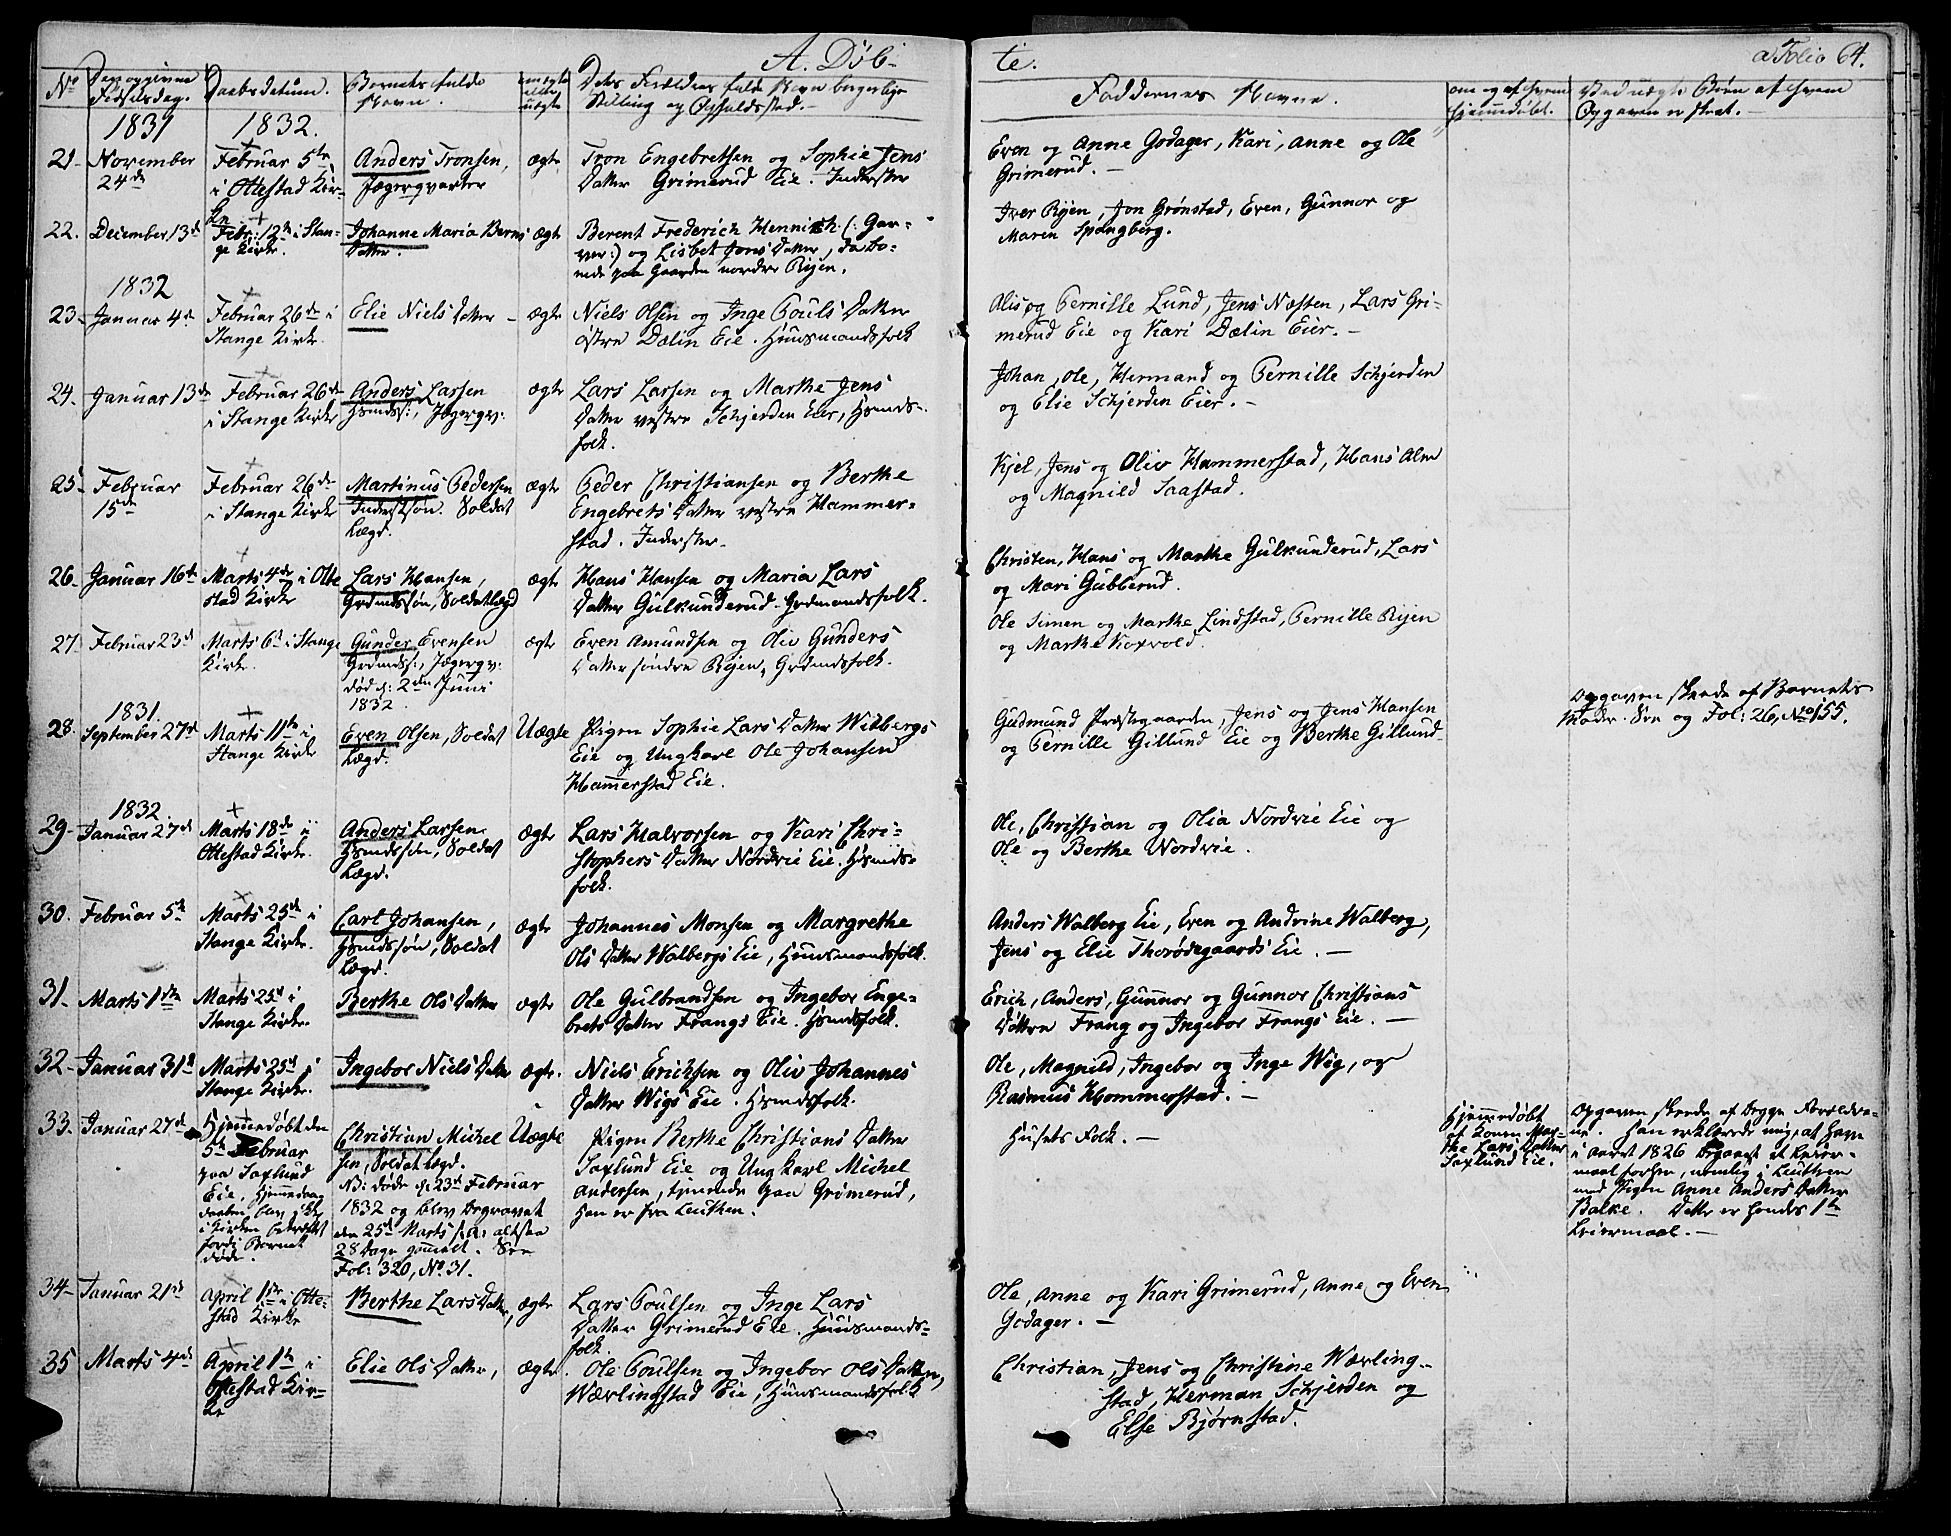 A. Døb-
te.
a Folio 64.
No
Den opgivne
Fødselsdag.
Daabsdatum.
Barnets fulde
Navn.
ægte
eller
uægte
Dets Forældres fulde Navn borgerlige
Stilling og Opholdssted.-
Faddernes Navne.
om og af hvem
hjemmedøbt.
Ved uægte Børn af hvem
Opgaven er skeet.-
1831
1832.
21- November
24de
Februar 5te
i Ottestad Kir-
ke
Anders Tronsen,
Jægerqvarter
ægte
Tron Engebretsen og Sophie Jens
Datter Grimerud Eie. Inderster
Even og Anne Godager, Kari, Anne og Ole
Grimerud.-
22. December 13de
Febr: 12te i Stan-
ge Kirke.
Johanne Maria Bernts
Datter.
ægte
Berent Frederich Hennich (: Gar-
ver:) og Lisbet Jens Datter, da bo-
ende paa Gaarden nordre Rijen.
Iver Rijen, Jon Grønstad, Even, Gunnor og
Maren Spangberg.
1832
23- Januar 4de
Februar 26de i
Stange Kirke.
Elie Niels Datter -
ægte
Niels Olsen og Inge Pouls Datter
østre Dælin Eie. Huusmandsfolk
Alis og Pernille Lund, Jens Næsten, Lars Gri-
merud Eie og Kari Dælin Eier.-
24. Januar 13de
Februar 26de
i Stange Kirke
Anders Larsen
Hsmdss:, Jægerqv:
ægte
Lars Larsen og Marthe Jens
Datter vestre Schjerden Eier, Hsmds-
folk.
Johan, Ole, Hermand og Pernille Schjerden
og Elie Schjerden Eier.-
25- Februar
15de
Februar 26de
i Stange Kirke
Martinus Pedersen
Inderstsøn. Soldat
Lægd.
ægte
Peder Christiansen og Berthe
Engebrets Datter vestre Hammer-
stad. Inderster.
Kjel, Jens og Oliv Hammerstad, Hans Alm
og Magnild Saastad.
26. Januar 16de
Marts 4de i Otte
stad Kirke
Lars Hansen,
Grdmdssøn, Soldatlægd
ægte
Hans Hansen og Maria Lars
Datter Gulkunderud. Grdmandsfolk.
Christen, Hans og Marthe Gulkunderud, Lars
og Mari Gubberud.
27. Februar 23de
Marts 6te i Stange
Kirke.
Gunder Evensen
Grdmdss:, Jægerqv:
død d: 2den Juni
1832.
ægte
Even Amundsen og Oliv Gunders
Datter søndre Rijen, Grdmdsfolk.
Ole Simen og Marthe Lindstad, Pernille Rijen
og Marthe Korvold.
1831.
28. September 27de
Marts 11te i
Stange Kirke
Even Olsen, Soldat
Lægd.
Uægte
Pigen Sophie Lars Datter Wilbergs
Eie og Ungkarl Ole Johansen
Hamerstad Eie.
Gudmund Præstegaarden, Jens og Jens Hansen
og Pernille Gillund Eie og Berthe Gillund
Opgaven skeede af Barnets
Moder. See og Fol: 26, No 155.
1832.
29- Januar 27de
Marts 18de i
Ottestad Kirke.
Anders Larsen
Hsmdssøn, Soldat
Lægd.
ægte
Lars Halvorsen og Kari Chri-
stophers Datter Nordvie Eie. Hsmds-
folk.
Ole, Christian og Olia Nordvie Eie og
Ole og Berthe Nordvie.
30. Februar 5te
Marts 25de i
Stange Kirke.
Carl Johansen,
Hsmdssøn, Soldat
Lægd.
ægte
Johannes Monsen og Margrethe
Ols Datter Walbergs Eie, Huusmandsfolk.
Anders Walberg Eie, Even og Andrine Walberg,
Jens og Elie Thorødegaards Eie.-
31- Marts 1ste
Marts 25de i
Stange Kirke.
Berthe Ols Datter
ægte
Ole Gulbrandsen og Ingebor Enge-
brets Datter Frangs Eie. Hsmdsfolk.
Erich, Anders, Gunnor og Gunnor Christians
Døttre Frang og Ingebor Frangs Eie.-
32- Januar 31te
Marts 25de i
Stange Kirke.
Ingebor Niels Datter
ægte.
Niels Erichsen og Oliv Johannes
Datter Wigs Eie. Hsmdsfolk.
Ole, Magnild, Ingebor og Inge Wig, og
Rasmus Hommerstad.-
33. Januar 27de
Hjemmedøbt den
5te Februar
paa Saxlund
Eie, Hjemme-
daaben blev ikke
i Kirken bekræftet
fordi Barnet
døde.
Christian Michel
sen, Soldat Lægd.
NB: døde d: 23de Februar
1832 og blev begravet
den 25de Marts s. A: altsaa
28 Dage gammelt. See
Fol: 320, No. 31.
Uægte
Pigen Berthe Christians Datter
Saxlund Eie og Ungkarl Michel
Andersen, tjenende paa Grimerud,
han er fra Leuthen.
Husets Folk.-
Hjemmedøbt
af Konen Mar-
the Lars Datter
Saxlund Eie.
Opgaven skeede af begge Foreldre-
ne. Han erklærede mig, at have
i aaret 1826 begaaet et Leier-
maal forhen, nemlig i Leuthen
med Pigen Anne Anders Datter
Balke. Dette er hendes 1te
Leiermaal.-
34- Januar 21de
April 1ste i Otte-
stad Kirke
Berthe Lars Datter,
ægte
Lars Poulsen og Inge Lars
Datter Grimerud Eie. Huusmands-
folk.
Ole, Anne og Kari Grimerud, Anne og Even
Godager.-
35 Marts 4de
April 1te i
Ottestad Kir-
ke
Elie Ols Datter,
ægte
Ole Poulsen og Ingebor Ols Datter,
Wærlingstad Eie, Huusmandsfolk
Christian, Jens og Christine Wærling-
stad, Herman Schjerden og
Else Bjørnstad.